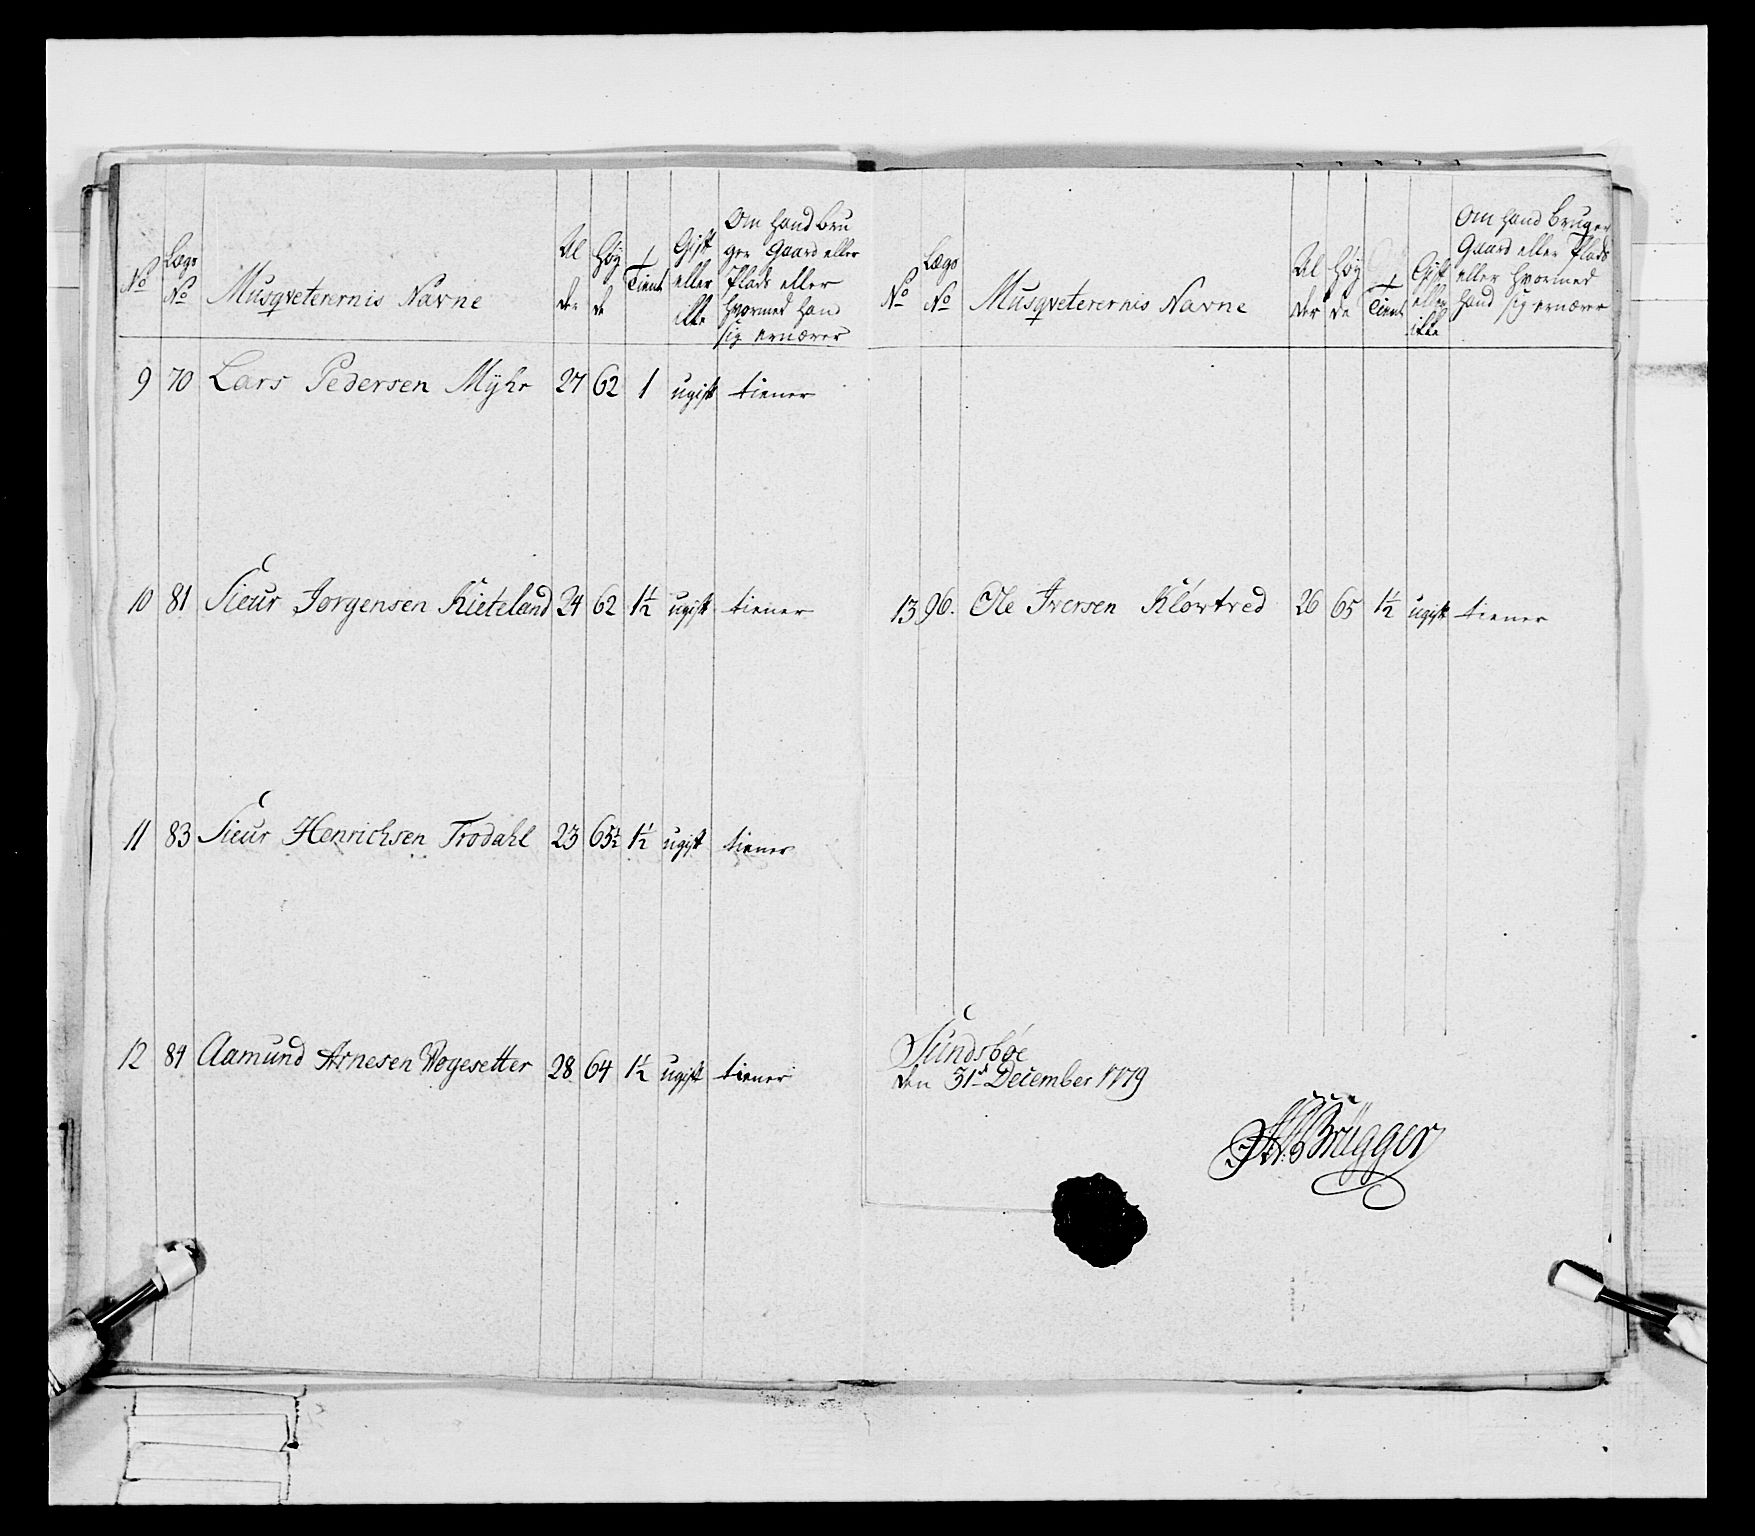 No Lægs No Musqveterernis Navne Al der Høy de Tient Gift eller ikke Om Hand Bru
ger Gaard eller
Plads eller
hvormed Hand
sig ernærer
9 70 Lars Pedersen Myhr 27 62 1 ugift tiener
10 81 Sieur Jorgensen Kieteland 24 62 1½ ugift tiener
11 83 Sieur Henrichsen Trodahl 23 65½ 1½ ugift tiener
12 84 Aamund Arnesen Wogesetter 28 64 1½ ugift tiener
No Lægs No Musqveterernis Navne Al der Høy de Tient Gift eller ikke Om Hand Bruger
Gaard eller Plads
eller hvormed
Hand sig ernærer
13 96. Ole Iversen Kløvtved 26 65 1½ ugift tiener
Sundsbøe
den 31t December 1779
Brügger